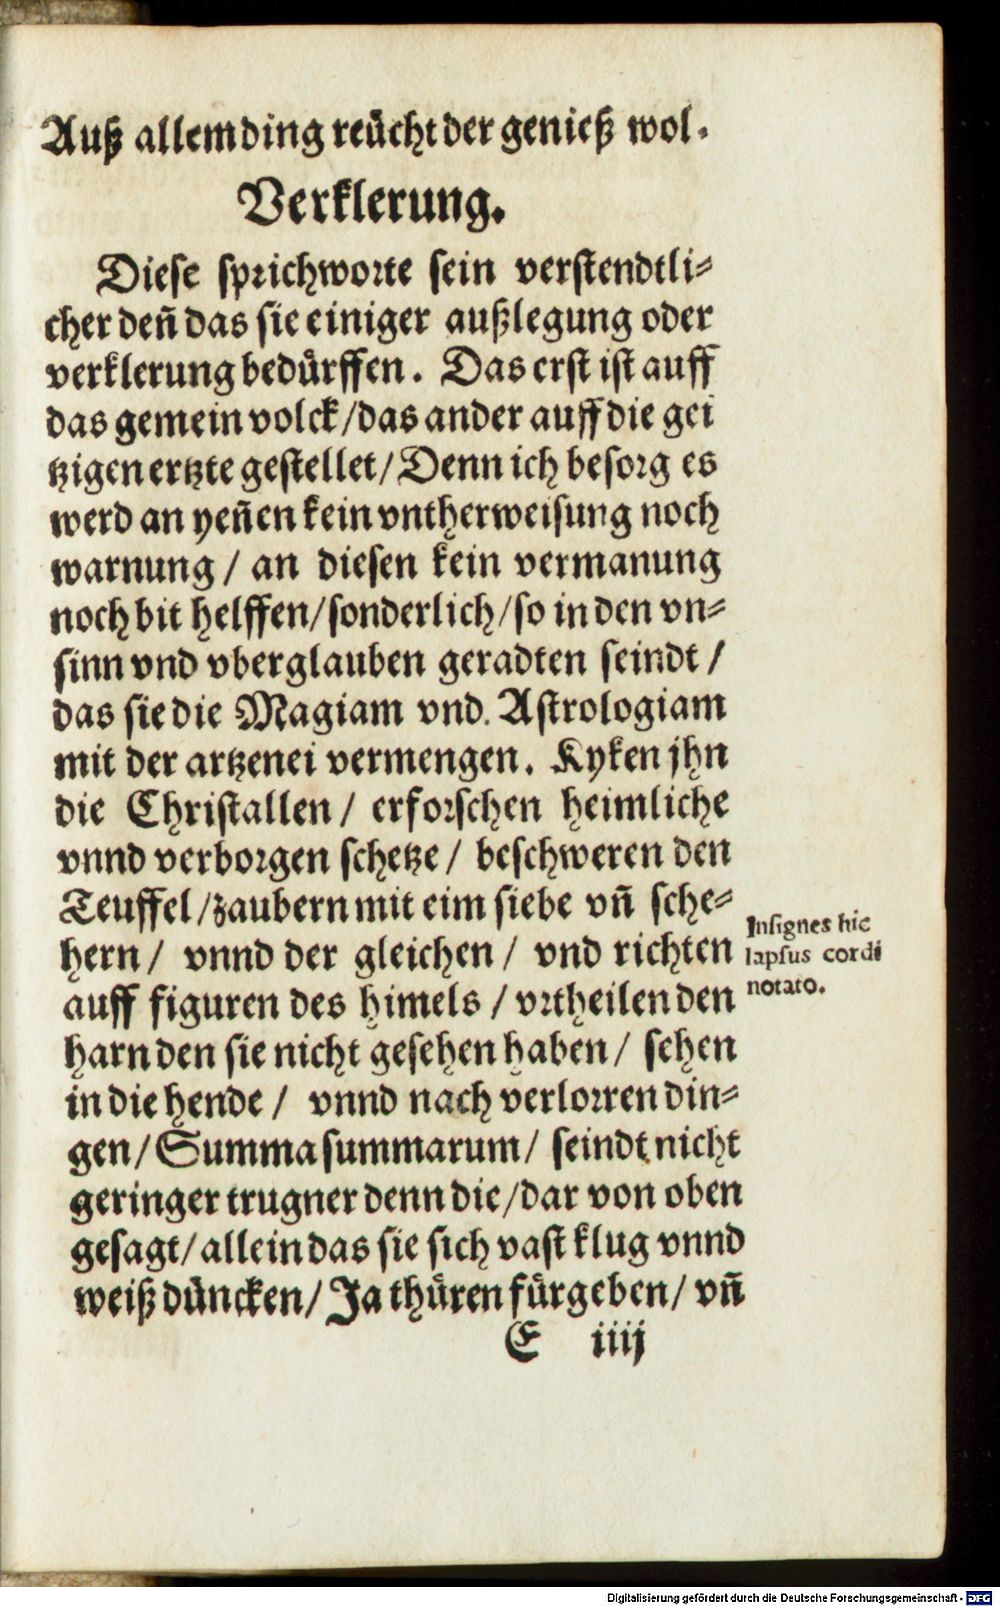 Auß allem ding reücht der genieß wol.
Verklerung.
Diese sprichworte sein verstendtli⸗
cher deñ das sie einiger außlegung oder
verklerung bedürffen. Das erst ist auff
das gemein volck/das ander auff die gei
tzigen ertzte gestellet/Denn ich besorg es
werd an yeñen kein vntherweisung noch
warnung/ an diesen kein vermanung
noch bit helffen/sonderlich/so in den vn⸗
sinn vnd vberglauben geradten seindt/
das sie die Magiam vnd. Astrologiam
mit der artzenei vermengen. Kyken jhn
die Christallen/ erforschen heimliche
vnnd verborgen schetze/ beschweren den
Teuffel/zaubern mit eim siebe vñ sche⸗
hern/ vnnd der gleichen/ vnd richten
auff figuren des himels/vrtheilen den
harn den sie nicht gesehen haben/ sehen
in die hende/ vnnd nach verlorren din⸗
gen/Summa summarum/ seindt nicht
geringer trugner denn die/dar von oben
gesagt/allein das sie sich vast klug vnnd
weiß düncken/Ja thüren fürgeben/ vñ
E iiij
Insignes hic
lapsus cordi
notato.
Digitalisierung gefördert durch die Deutsche Forschungsgemeinschaft - DFG